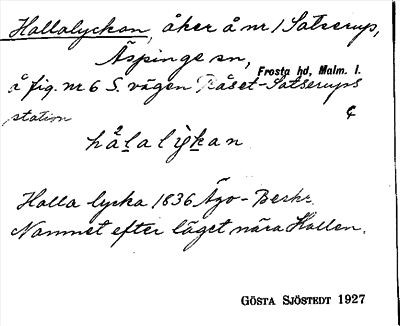 Hallalyckan, åker å nr 1 Satserup,
Äspinge sn,
Frosta hd, Malm. l.
å fig. nr 6 S. vägen Råset-Satserups
station
hålalykan
Halla lycka 1836 Ägo-Beskr.
Namnet efter läget nära Hallen.
GÖSTA SJÖSTEDT 1927